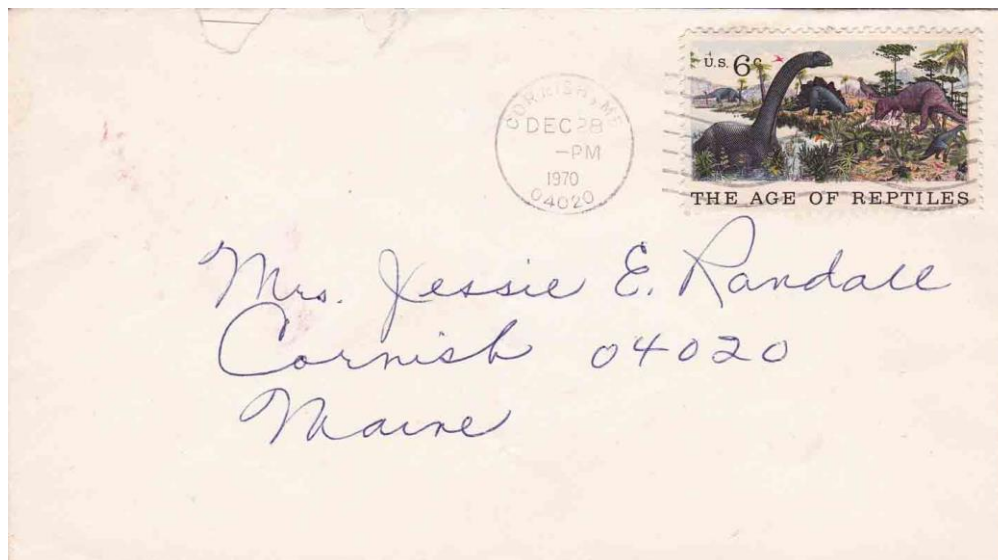 U.S. 6c
CORNISH, ME
DEC 28
-PM
1970
04020
THE AGE OF REPTILES
Mrs. Jessie E. Randall
Cornish 04020
Maine